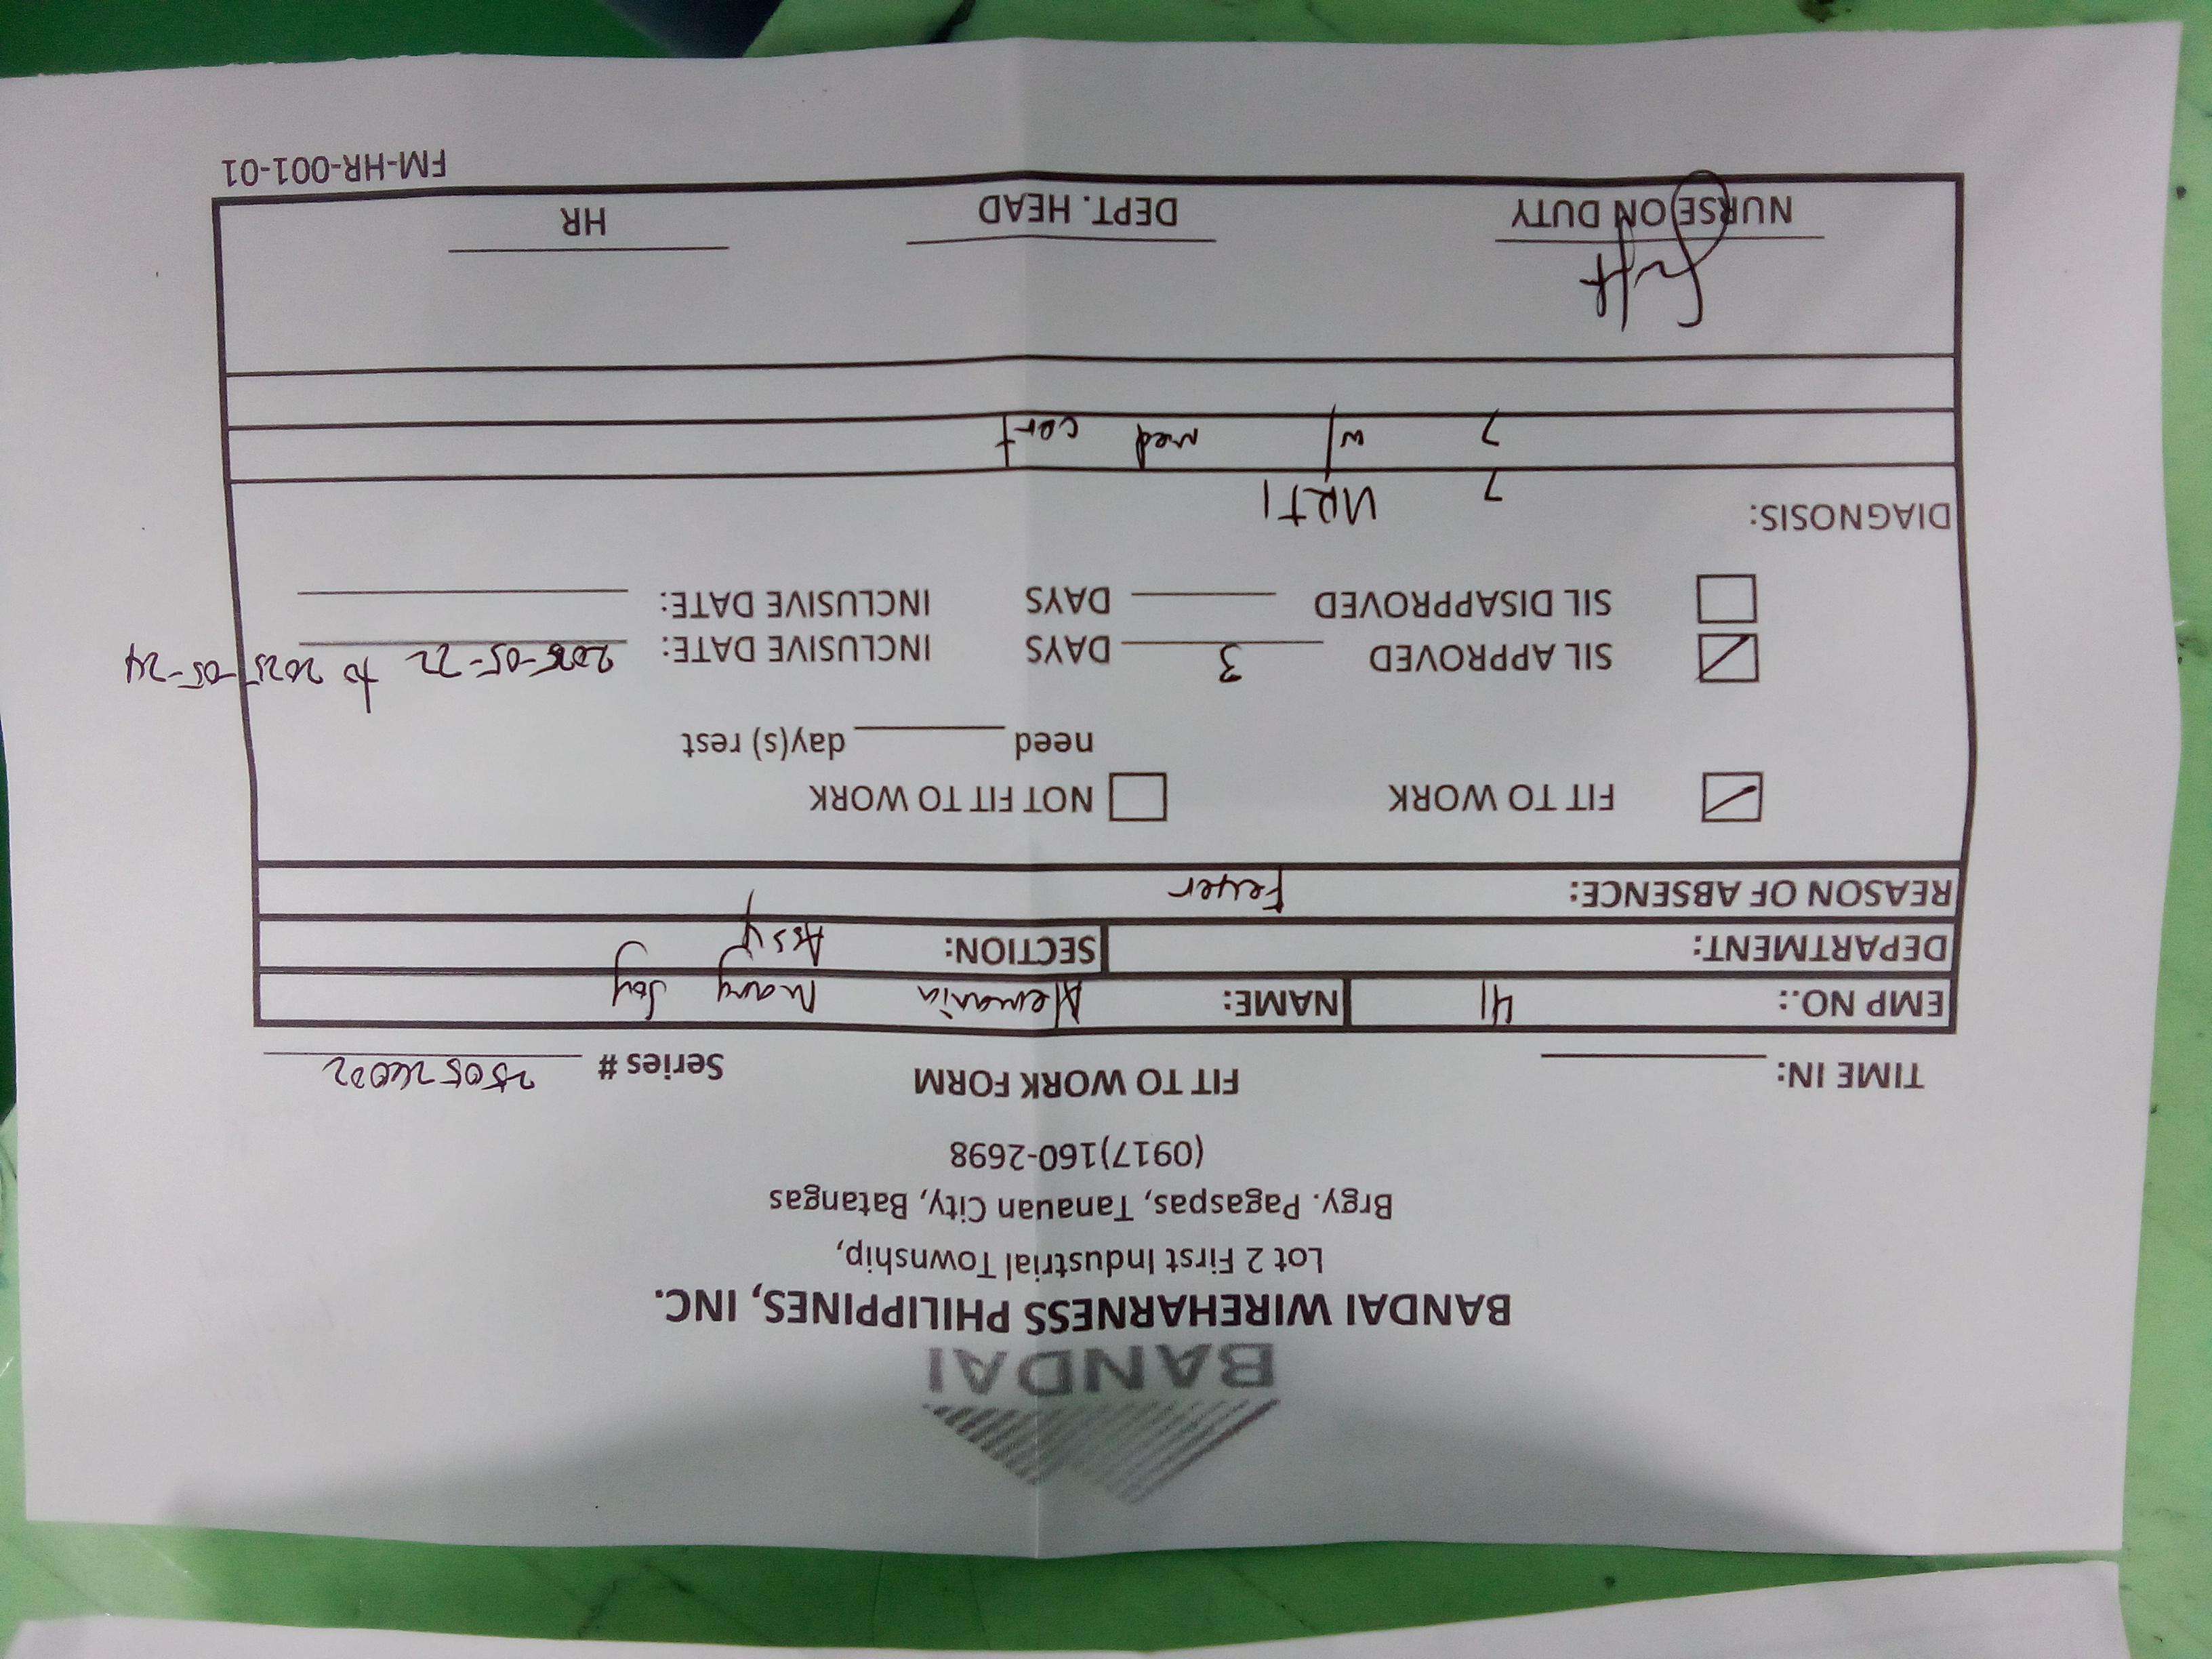 BANDAI
BANDAI WIREHARNESS PHILIPPINES, INC.
Lot 2 First Industrial Township,
Brgy. Pagaspas, Tanauan City, Batangas
(0917)160-2698
TIME IN: FIT TO WORK FORM Series # 25052602
EMP NO.: 41 NAME: Alemania Mary Joy
DEPARTMENT: SECTION: Assy
REASON OF ABSENCE: Fever
FIT TO WORK NOT FIT TO WORK
need day(s) rest
SIL APPROVED 3 DAYS INCLUSIVE DATE: 2025-05-22 to 2025-05-24
SIL DISAPPROVED DAYS INCLUSIVE DATE:
DIAGNOSIS: URTI
w/ med cert
NURSE ON DUTY DEPT. HEAD HR
FM-HR-001-01